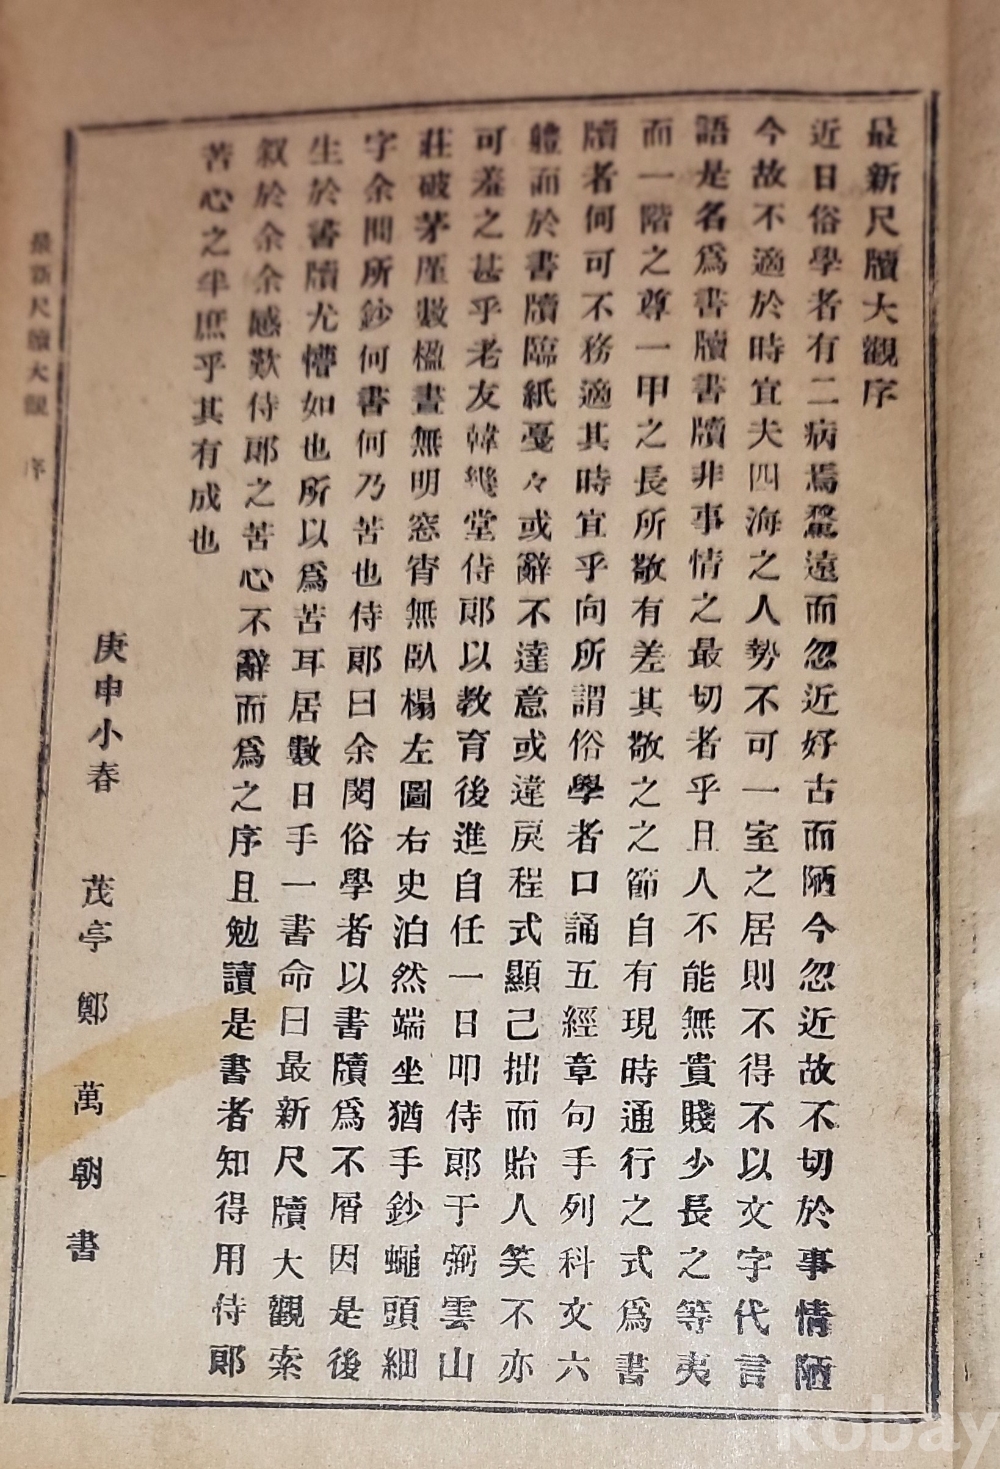 最新尺牘大觀序
近日俗學者有二病焉騖遠而忽近好古而陋今忽近故不切於事情陋
今故不適於時宜夫四海之人勢不可一室之居則不得不以文字代言
語是名爲書牘書牘非事情之最切者乎且人不能無貴賤少長之等夷
而一階之尊一甲之長所敬有差其敬之之節自有現時通行之式爲書
牘者何可不務適其時宜乎向所謂俗學者口誦五經章句手列科文六
體而於書牘臨紙戞々或辭不達意或違戾程式顯己拙而貽人笑不亦
可羞之甚乎老友韓堂侍郎以教育後進自任一日叩侍郎于弼雲山
莊破茅厓數楹晝無明窓宵無臥榻左圖右史泊然端坐猶手鈔蠅頭細
字余問所鈔何書何乃苦也侍郎曰余閔俗學者以書牘爲不屑因是後
生於書牘尤懵如也所以爲苦耳居數日手一書命曰最新尺牘大觀索
叙於余余感歎侍郎之苦心不辭而爲之序且勉讀是書者知得用侍郎
苦心之半庶乎其有成也
庚申小春 茂亭 鄭 萬 朝 書
最新尺牘大觀 序
kobay